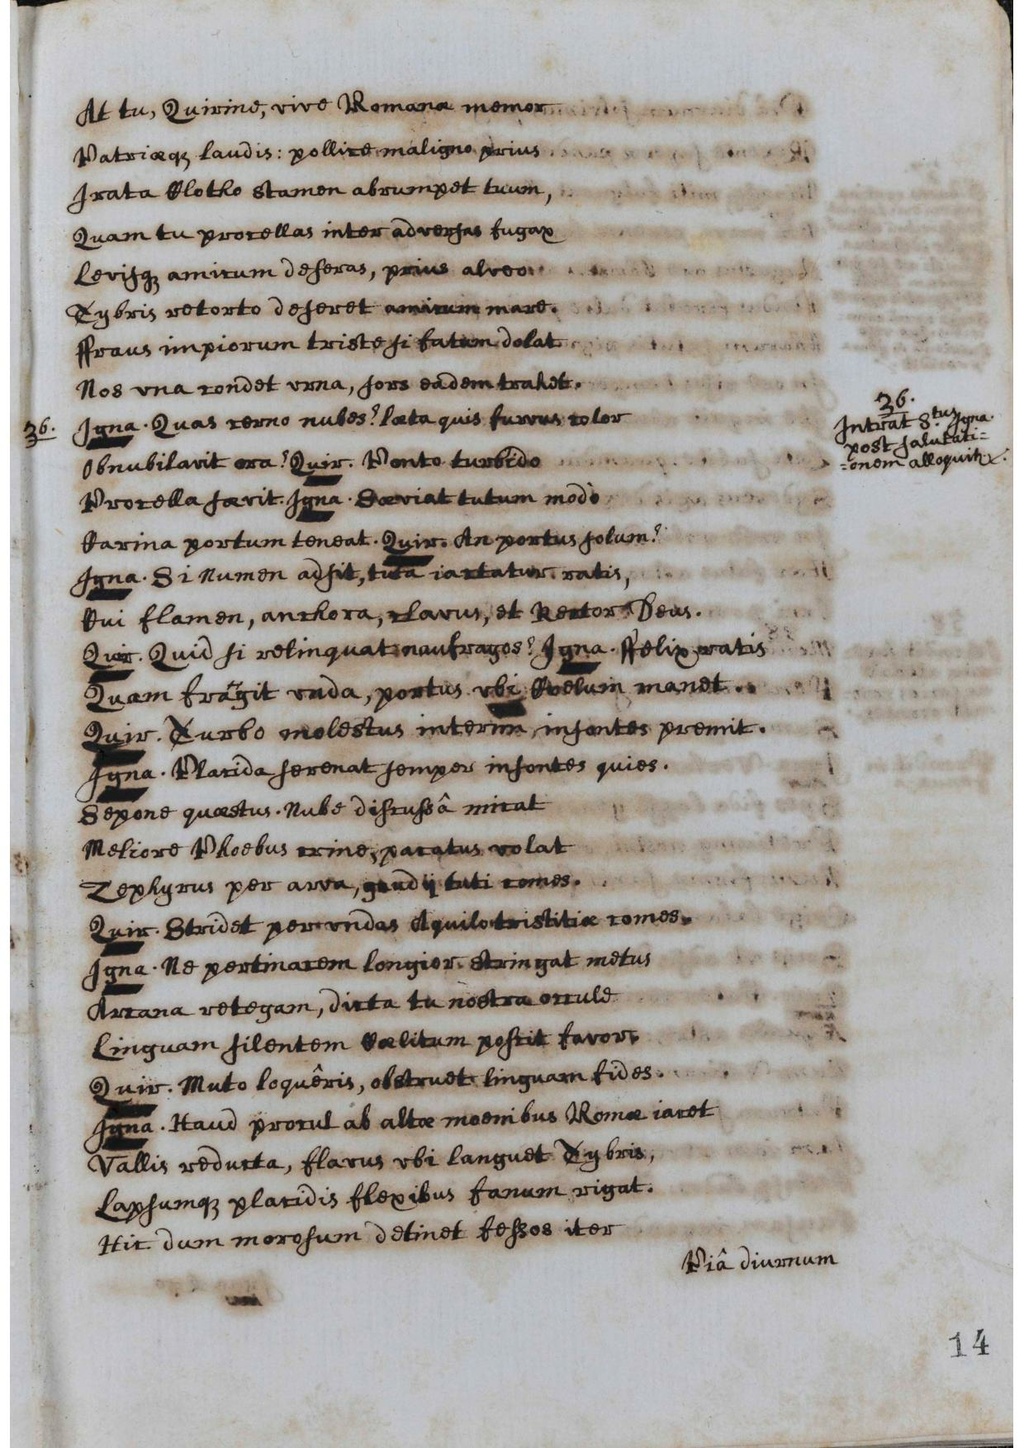 At tu, Quirine, vive Romanæ memor
Patriæq; laudis: pollice maligno prius
Irata Klotho stamen abrumpet tuum,
Quam tu procellas inter adversas fugax
Levisq; amicum deseras, prius alveo
Tybris retorto deseret amicum mare.
ffraus impiorum triste si fatum dolat
Nos vna condet vrna, sors eadem trahet.
36. Igna. Quas cerno nubes? læta quis furvus color
Obnubilavit ora? Quir. Ponto turbido
Procella sævit. Igna. Sæviat tutum modò
Karina portum teneat. Quir. An portus solum?
Igna. Si Numen adsit, tuta iactatur ratis,
Kui flamen, anchora, clavus, et Rector Deus.
Quir. Quid si relinquat naufragos? Igna. ffelix ratis
Quam frangit vnda, portus vbi Koelum manet.
Quir. Turbo molestus interim insontes premit.
Igna. Placida serenat semper insontes quies.
Sepone quæstus. Nube discussâ micat
Meliore Phoebus crine, pacatus volat
Zephyrus per arva, gaudij tuti comes.
Quir. Stridet per vndas Aquilo tristitiæ comes.
Igna. Ne pertinacem longior stringat metus
Arcana retegam, dicta tu nostra occule
Linguam silentem Kælitum poscit favor.
Quir. Muto loquêris, obstruet linguam fides.
Igna. Haud procul ab altæ moenibus Romæ iacet
Vallis reducta, flavus vbi languet Tybris,
Lapsumq; placidis flexibus fanum rigat.
Hic dum morosum detinet fessos iter
Piâ diurnum
36.
Intrat S.tus Igna.
post salutati=
=onem alloquitr.
14